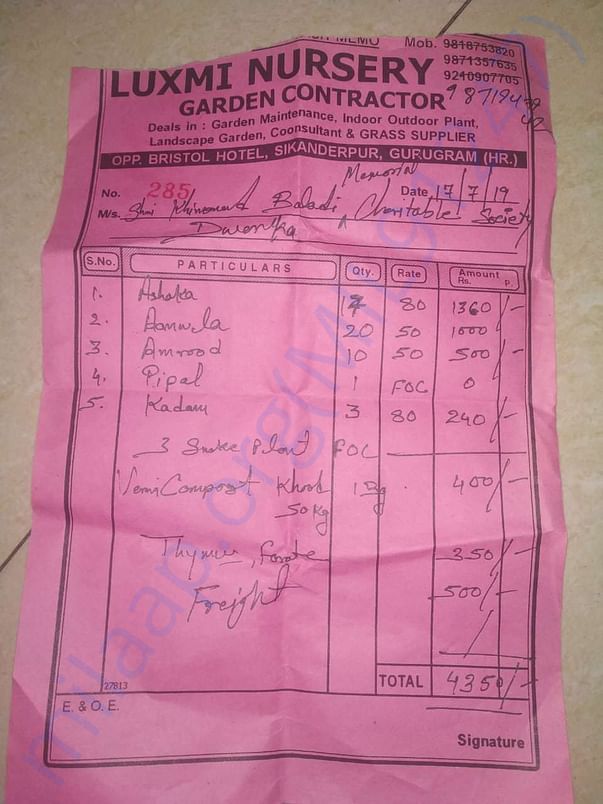 CASH MEMO Mob. 9818753820
9871357635
9210907705
LUXMI NURSERY
GARDEN CONTRACTOR
Deals in : Garden Maintenance, Indoor Outdoor Plant,
Landscape Garden, Coonsultant & GRASS SUPPLIER
OPP. BRISTOL HOTEL, SIKANDERPUR, GURUGRAM (HR.)
No. 285 Date 17/7/19
Memorial
M/s. Shri Charitable Society
Dwarka
S.No. PARTICULARS Qty. Rate Amount Rs. P.
1. Ashoka 17 80 1360/-
2. Aamwla 20 50 1000
3. Amrood 10 50 500/-
4. Pipal 1 FOC 0
5. Kadam 3 80 240/-
3 Snake Plant FOC
Vermi Compost 1 400/-
50 Kg
350/-
Freight 500/-
TOTAL 4350/-
27813
E. & O. E.
Signature
milaap.org